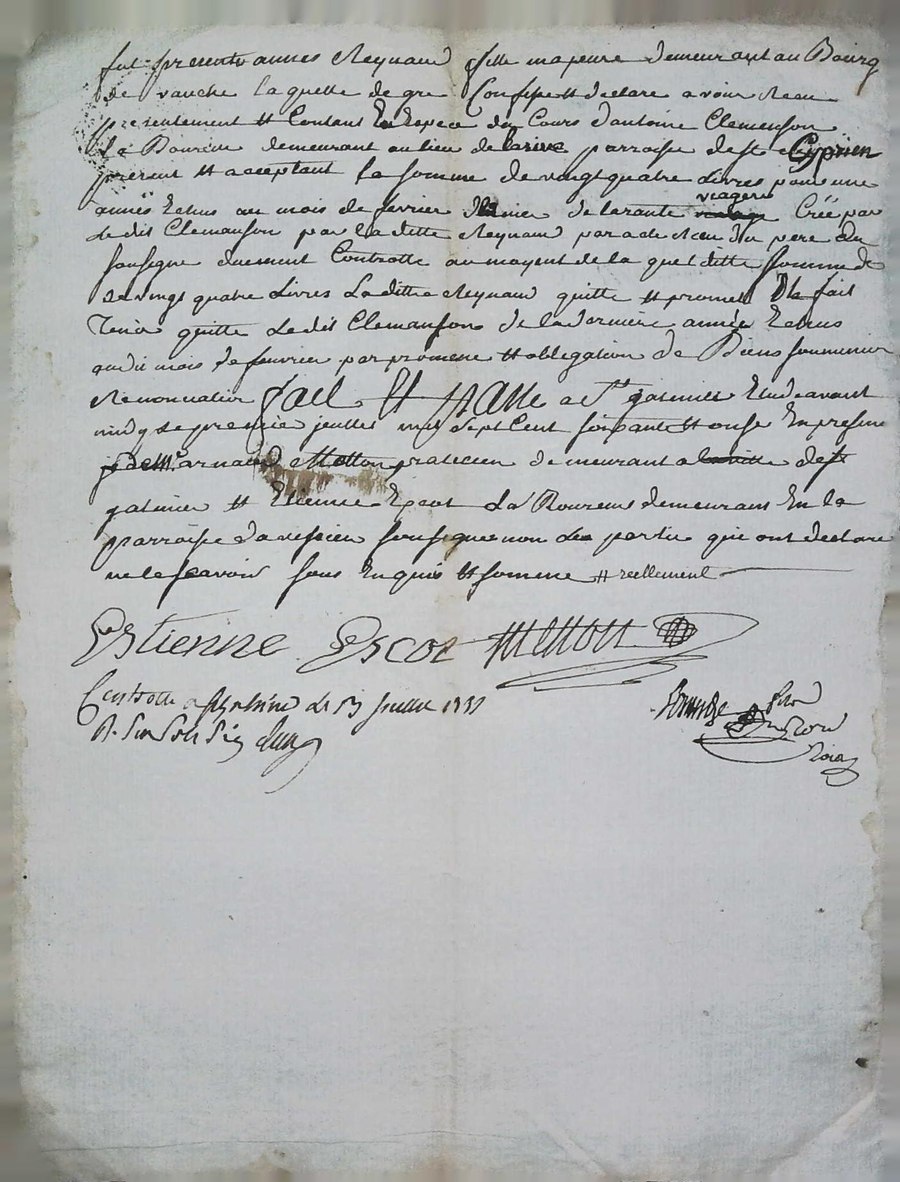 fut presente annes Reynaud fille majeure demeurant au Bourg
de vauche laquelle de gre Confesse et declare avoir Receu
presentement et Contant En Espece du Cours d'antoine Clemenson
La Boureur demeurant au lieu de larive parroisse de st Cyprien
present et acceptant la somme de vaingt quatre Livres pour une
année Echus au mois de fevrier dernier de larante viagere Créé par
Le dit Clemanson par la ditte Reynaud par acte Receu du pere du
sousigne duement Controlle au moyent de la quelditte somme de
vingt quatre Livres Laditte Reynaud quitte et promet
Tenir quitte Ledit Clemanson de laderniere année Echus
mois de fevrier par promesse et obligation de Biens
Renonciation fait et passé a st galmier Etude avant
midy le premié jeuillet mil sept Cent soixante et onze En presence
de Mr arnaud Metton praticien demeurant a la ville de st
galmier et Etienne Escot La Boureur demeurant En la
parroisse sousigne non Les partie que ont declare
ne le scavoir sous Enquis et somme et reellement
Estienne Escot Metton
Controlle a le juillet 1771
R.